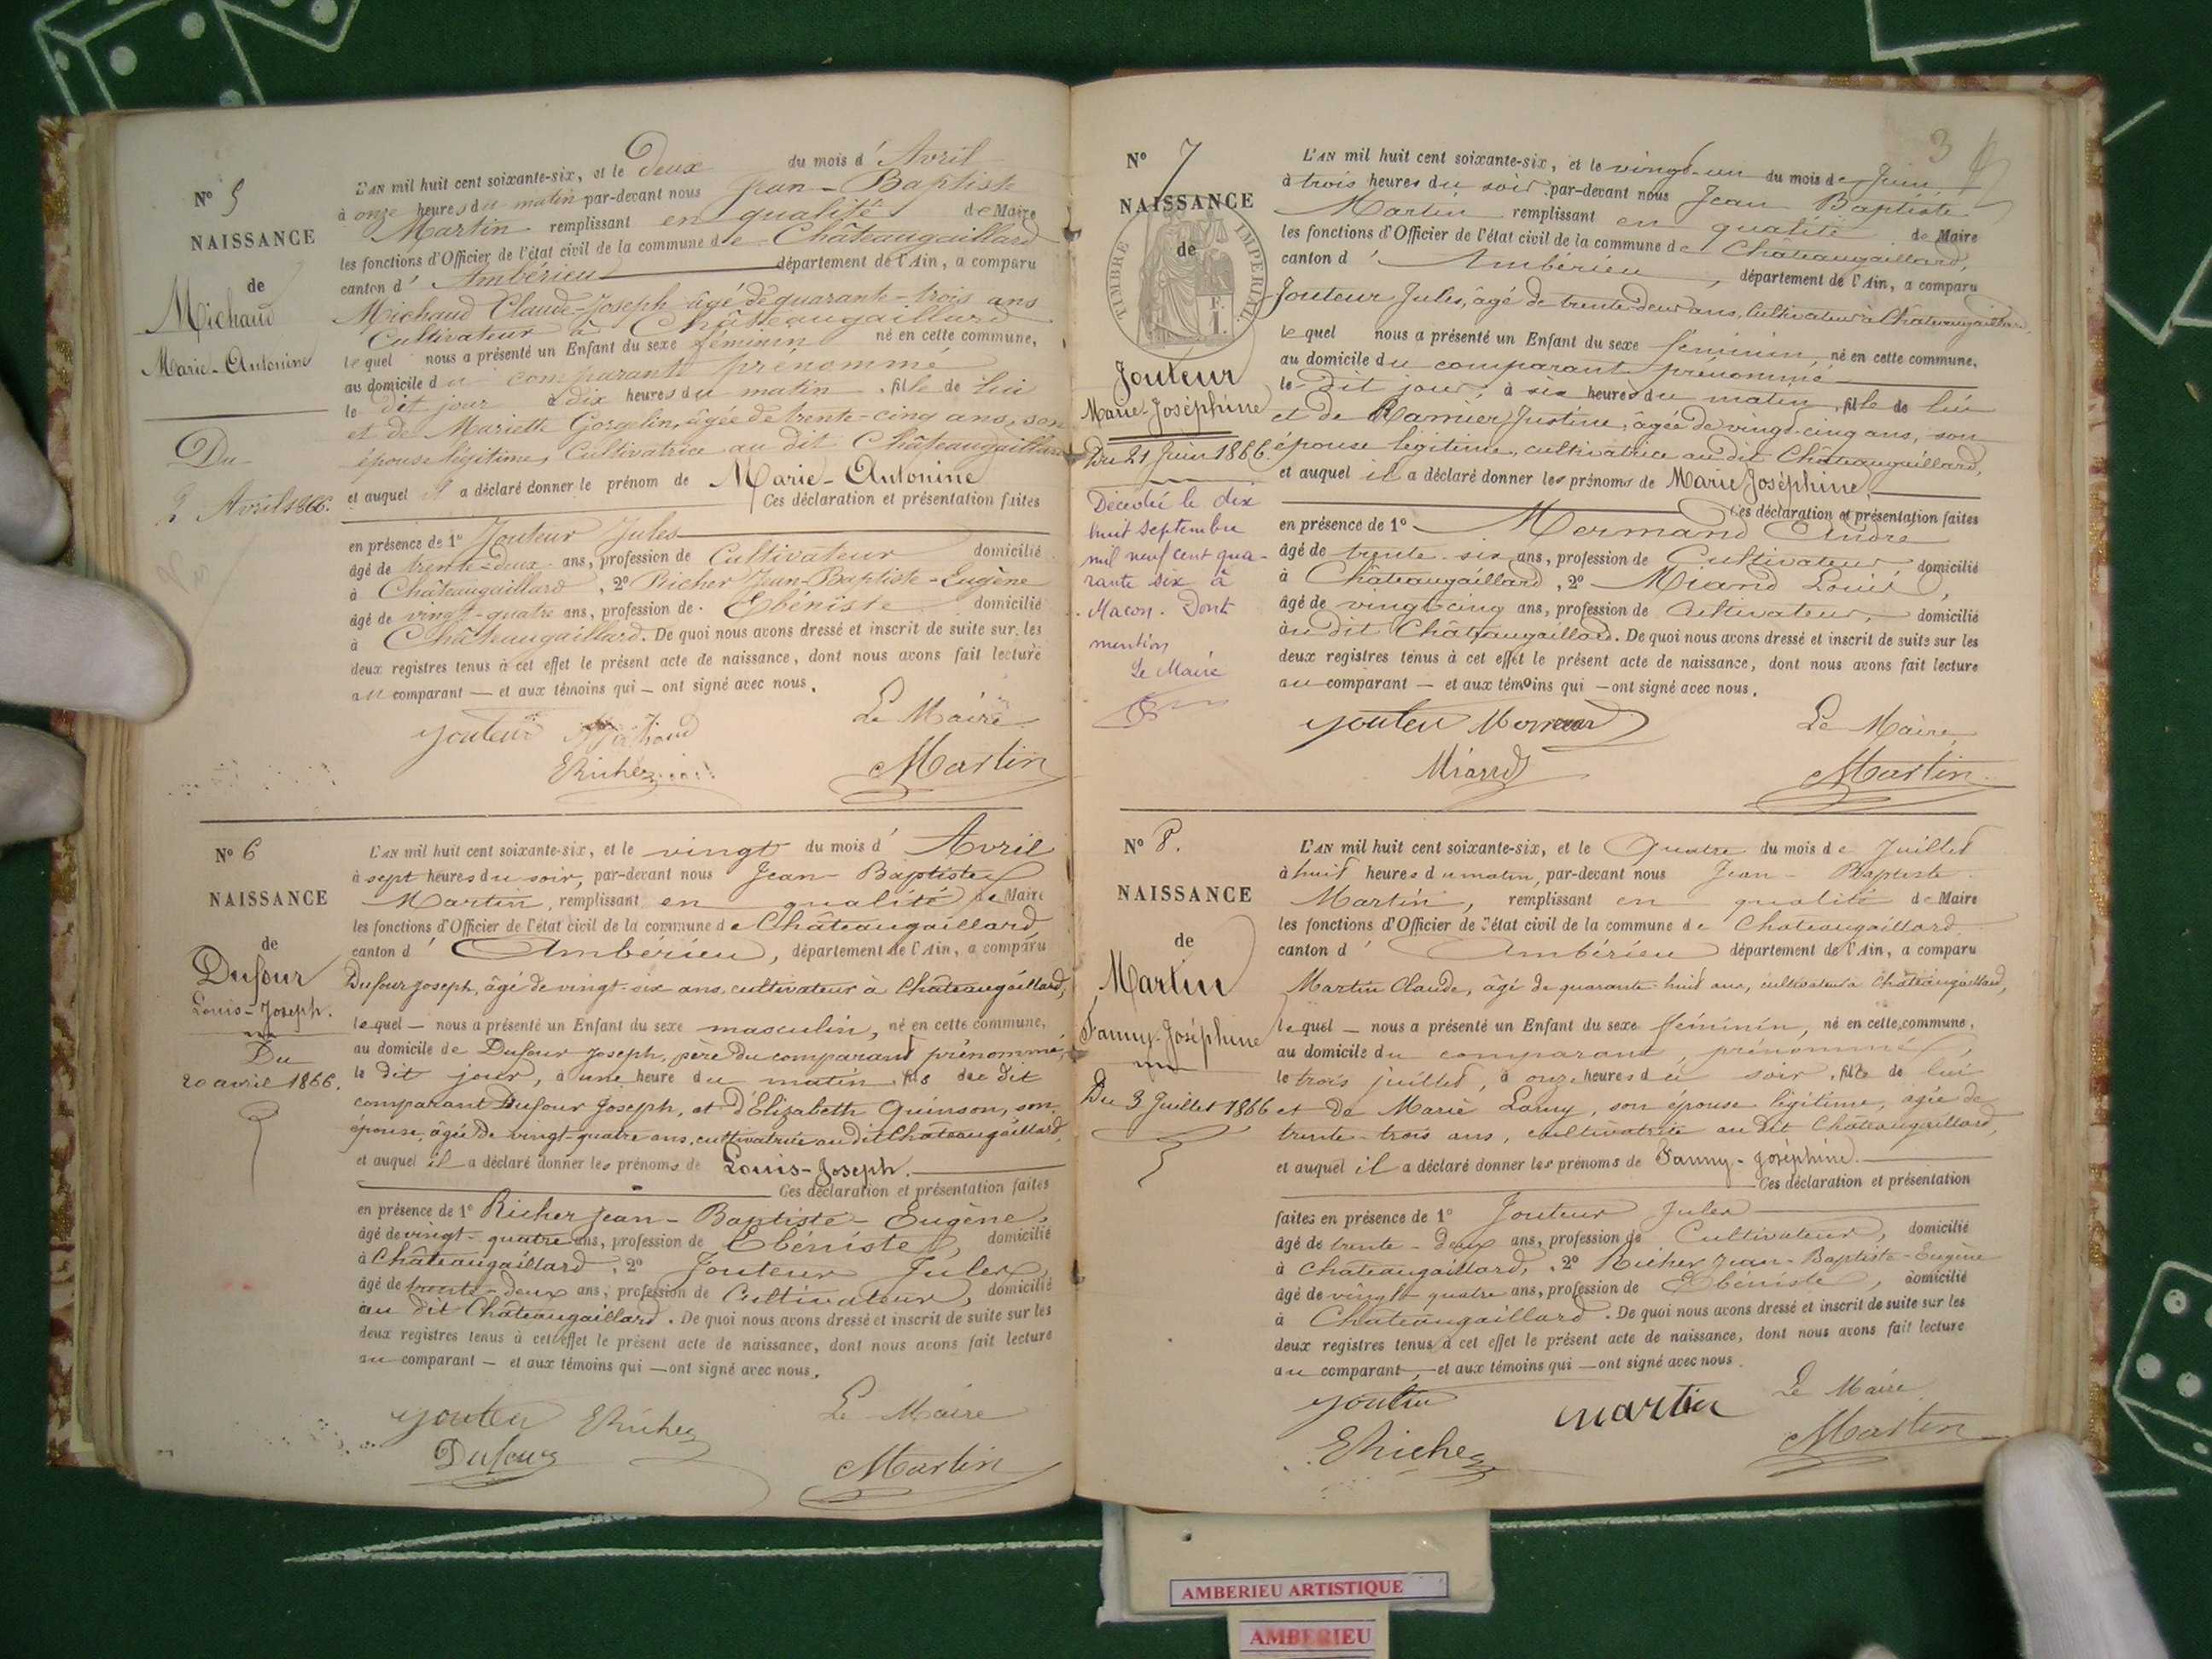 N° 5
NAISSANCE
de
Michaud
Marie-Antonine
Du
2 Avril 1866.
L'AN mil huit cent soixante-six, et le deux du mois d'Avril
à onze heures du matin par-devant nous Jean-Baptiste
Martin remplissant en qualité de Maire
les fonctions d'Officier de l'état civil de la commune de Châteaugaillard
canton d'Ambérieu département de l'Ain, a comparu
Michaud Claude-Joseph âgé de quarante-trois ans
Cultivateur à Châteaugaillard
lequel nous a présenté un Enfant du sexe féminin né en cette commune,
au domicile du comparant prénommé
le dit jour à dix heures du matin, fille de lui
et de Mariette Gorgelin, âgée de trente-cinq ans, son
épouse légitime, Cultivatrice au dit Châteaugaillard
et auquel il a déclaré donner le prénom de Marie-Antonine
Ces déclaration et présentation faites
en présence de 1° Jouteur Jules
âgé de trente-deux ans, profession de Cultivateur domicilié
à Châteaugaillard, 2° Richer Jean-Baptiste-Eugène
âgé de vingt-quatre ans, profession de Ebéniste domicilié
à Châteaugaillard. De quoi nous avons dressé et inscrit de suite sur les
deux registres tenus à cet effet le présent acte de naissance, dont nous avons fait lecture
au comparant — et aux témoins qui — ont signé avec nous.
Jouteur Michaud Le Maire
ERicher Martin
N° 6
NAISSANCE
de
Dufour
Louis-Joseph.
Du
20 avril 1866.
L'AN mil huit cent soixante-six, et le vingt du mois d'Avril
à sept heures du soir, par-devant nous Jean-Baptiste
Martin, remplissant en qualité de Maire
les fonctions d'Officier de l'état civil de la commune de Châteaugaillard
canton d'Ambérieu, département de l'Ain, a comparu
Dufour Joseph, âgé de vingt-six ans, cultivateur à Châteaugaillard,
lequel — nous a présenté un Enfant du sexe masculin, né en cette commune,
au domicile de Dufour Joseph, père du comparant prénommé,
le dit jour, à une heure du matin fils du dit
comparant Dufour Joseph, et d'Elizabeth Quinson, son
épouse, âgée de vingt-quatre ans, cultivatrice au dit Châteaugaillard,
et auquel il a déclaré donner les prénoms de Louis-Joseph.
Ces déclaration et présentation faites
en présence de 1° Richer Jean-Baptiste-Eugène,
âgé de vingt-quatre ans, profession de Ebéniste, domicilié
à Châteaugaillard, 2° Jouteur Jules,
âgé de trente-deux ans, profession de Cultivateur, domicilié
au dit Châteaugaillard. De quoi nous avons dressé et inscrit de suite sur les
deux registres tenus à cet effet le présent acte de naissance, dont nous avons fait lecture
au comparant — et aux témoins qui — ont signé avec nous.
Jouteur ERicher Le Maire
Dufour Martin
3
N° 7
NAISSANCE
de
TIMBRE IMPERIAL
F.
1.
Jouteur
Marie-Joséphine
Du 21 Juin 1866.
Décédée le dix
huit septembre
mil neuf cent qua-
rante six à
Macon. Dont
mention
Le Maire
L'AN mil huit cent soixante-six, et le vingt-un du mois de Juin,
à trois heures du soir par-devant nous Jean Baptiste
Martin remplissant en qualité de Maire
les fonctions d'Officier de l'état civil de la commune de Châteaugaillard,
canton d'Ambérieu, département de l'Ain, a comparu
Jouteur Jules, âgé de trente-deux ans, Cultivateur à Châteaugaillard,
lequel nous a présenté un Enfant du sexe féminin, né en cette commune,
au domicile du comparant prénommé
le dit jour, à six heures du matin, fille de lui
et de Ramier Justine, âgée de vingt-cinq ans, son
épouse légitime, cultivatrice au dit Châteaugaillard,
et auquel il a déclaré donner les prénoms de Marie Joséphine.
Ces déclaration et présentation faites
en présence de 1° Mermand André
âgé de trente-six ans, profession de Cultivateur domicilié
à Châteaugaillard, 2° Miand Louis,
âgé de vingt cinq ans, profession de Cultivateur, domicilié
au dit Châteaugaillard. De quoi nous avons dressé et inscrit de suite sur les
deux registres tenus à cet effet le présent acte de naissance, dont nous avons fait lecture
au comparant — et aux témoins qui — ont signé avec nous.
Jouteur Mermand Le Maire
Miand Martin
N° 8.
NAISSANCE
de
Martin
Fanny-Joséphine
Du 3 Juillet 1866
L'AN mil huit cent soixante-six, et le Quatre du mois de Juillet
à huit heures du matin, par-devant nous Jean-Baptiste
Martin, remplissant en qualité de Maire
les fonctions d'Officier de l'état civil de la commune de Chateaugaillard
canton d'Ambérieu département de l'Ain, a comparu
Martin Claude, âgé de quarante-huit ans, cultivateur à Châteaugaillard,
lequel — nous a présenté un Enfant du sexe féminin, né en cette commune,
au domicile du comparant, prénommé,
le trois juillet, à onze heures du soir, fille de lui
et de Marie Lamy, son épouse légitime, agée de
trente-trois ans, cultivatrice au dit Châteaugaillard,
et auquel il a déclaré donner les prénoms de Fanny-Joséphine.
Ces déclaration et présentation
faites en présence de 1° Jouteur Jules
âgé de trente-deux ans, profession de Cultivateur, domicilié
à Chateaugaillard, 2° Richer Jean-Baptiste-Eugène
âgé de vingt-quatre ans, profession de Ebéniste, domicilié
à Chateaugaillard. De quoi nous avons dressé et inscrit de suite sur les
deux registres tenus à cet effet le présent acte de naissance, dont nous avons fait lecture
au comparant, — et aux témoins qui — ont signé avec nous.
Jouteur martin Le Maire
ERicher Martin
AMBERIEU ARTISTIQUE
AMBERIEU